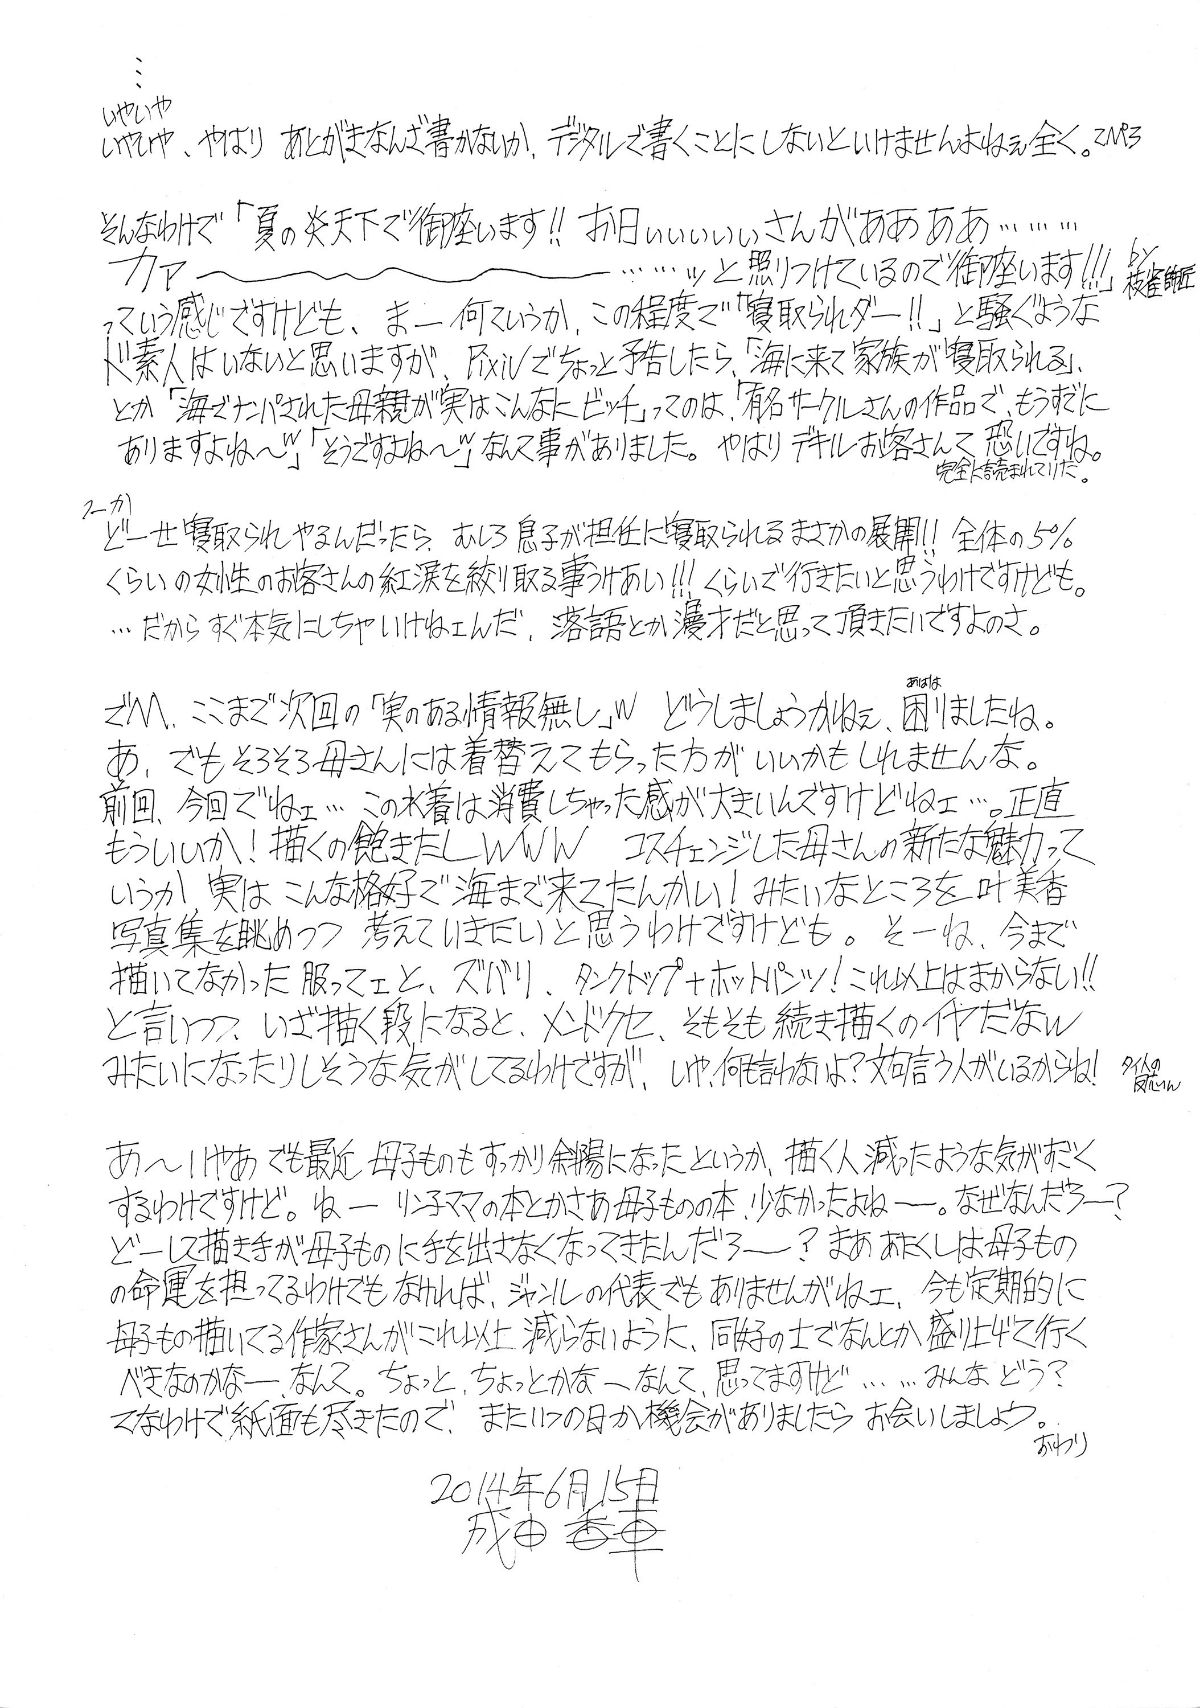 いやいや
いやいや、やはり あとがきなんざ書かないか、デジタルで書くことにしないといけませんよねぇ全く。
そんなわけで「夏の炎天下で御座います!! お日ぃぃぃぃぃさんがああああ………
カァ〜〜〜……ッと照りつけているので御座います!!!」by枝雀師匠
っていう感じですけども、まー何ていうか、この程度で「寝取られダー!!」と騒ぐような
ド素人はいないと思いますが、Pixivでちょっと予告したら、「海に来て家族が寝取られる」、
とか「海でナンパされた母親が実はこんなにビッチ」ってのは、「有名サークルさんの作品で、もうすでに
ありますよね〜w」「そうですよね〜w」なんて事がありました。やはりデキルお客さんて恐いですね。
完全に読まれてりだ。
つーか
どーせ寝取られやるんだったら、むしろ息子が担任に寝取られるまさかの展開!! 全体の5%
くらいの女性のお客さんの紅涙を絞り取る事うけあい!!! くらいで行きたいと思うわけですけども。
…だからすぐ本気にしちゃいけねェんだ、落語とか漫才だと思って頂きたいですよのさ。
でM、ここまで次回の「実のある情報無し」w どうしましょうかねぇ、困りましたね。
あはは
あ、でもそろそろ母さんには着替えてもらった方がいいかもしれませんな。
前回、今回でねェ…この水着は消費しちゃった感が大きいんですけどねェ…。正直
もういいか!描くの飽きたしwww コスチェンジした母さんの新たな魅力って
いうか、実はこんな格好で海まで来てたんかい!みたいなところを叶美香
写真集を眺めつつ考えていきたいと思うわけですけども。そーね、今まで
描いてなかった服ってェと、ズバリ、タンクトップ+ホットパンツ!これ以上はまからない!!
と言いつつ、いざ描く段になると、メンドクセ、そもそも続き描くのイヤだなw
みたいになったりしそうな気がしてるわけですが、いや、何も言わないよ?文句言う人がいるからね!
あ〜いやあでも最近母子ものもすっかり斜陽になったというか、描く人減ったような気がすごく
するわけですけど。ねーリン子ママの本とかさあ母子ものの本、少なかったよねー。なぜなんだろー?
どーして描き手が母子ものに手を出さなくなってきたんだろー?まああたくしは母子もの
の命運を担ってるわけでもなければ、ジャンルの代表でもありませんがねェ、今も定期的に
母子もの描いてる作家さんがこれ以上減らないように、同好の士でなんとか盛り上げて行く
べきなのかなー、なんて。ちょっと、ちょっとかなーなんて、思ってますけど……みんなどう?
てなわけで紙面も尽きたので、またいつの日か機会がありましたらお会いしましょう。
おわり
2014年6月15日
成田香車